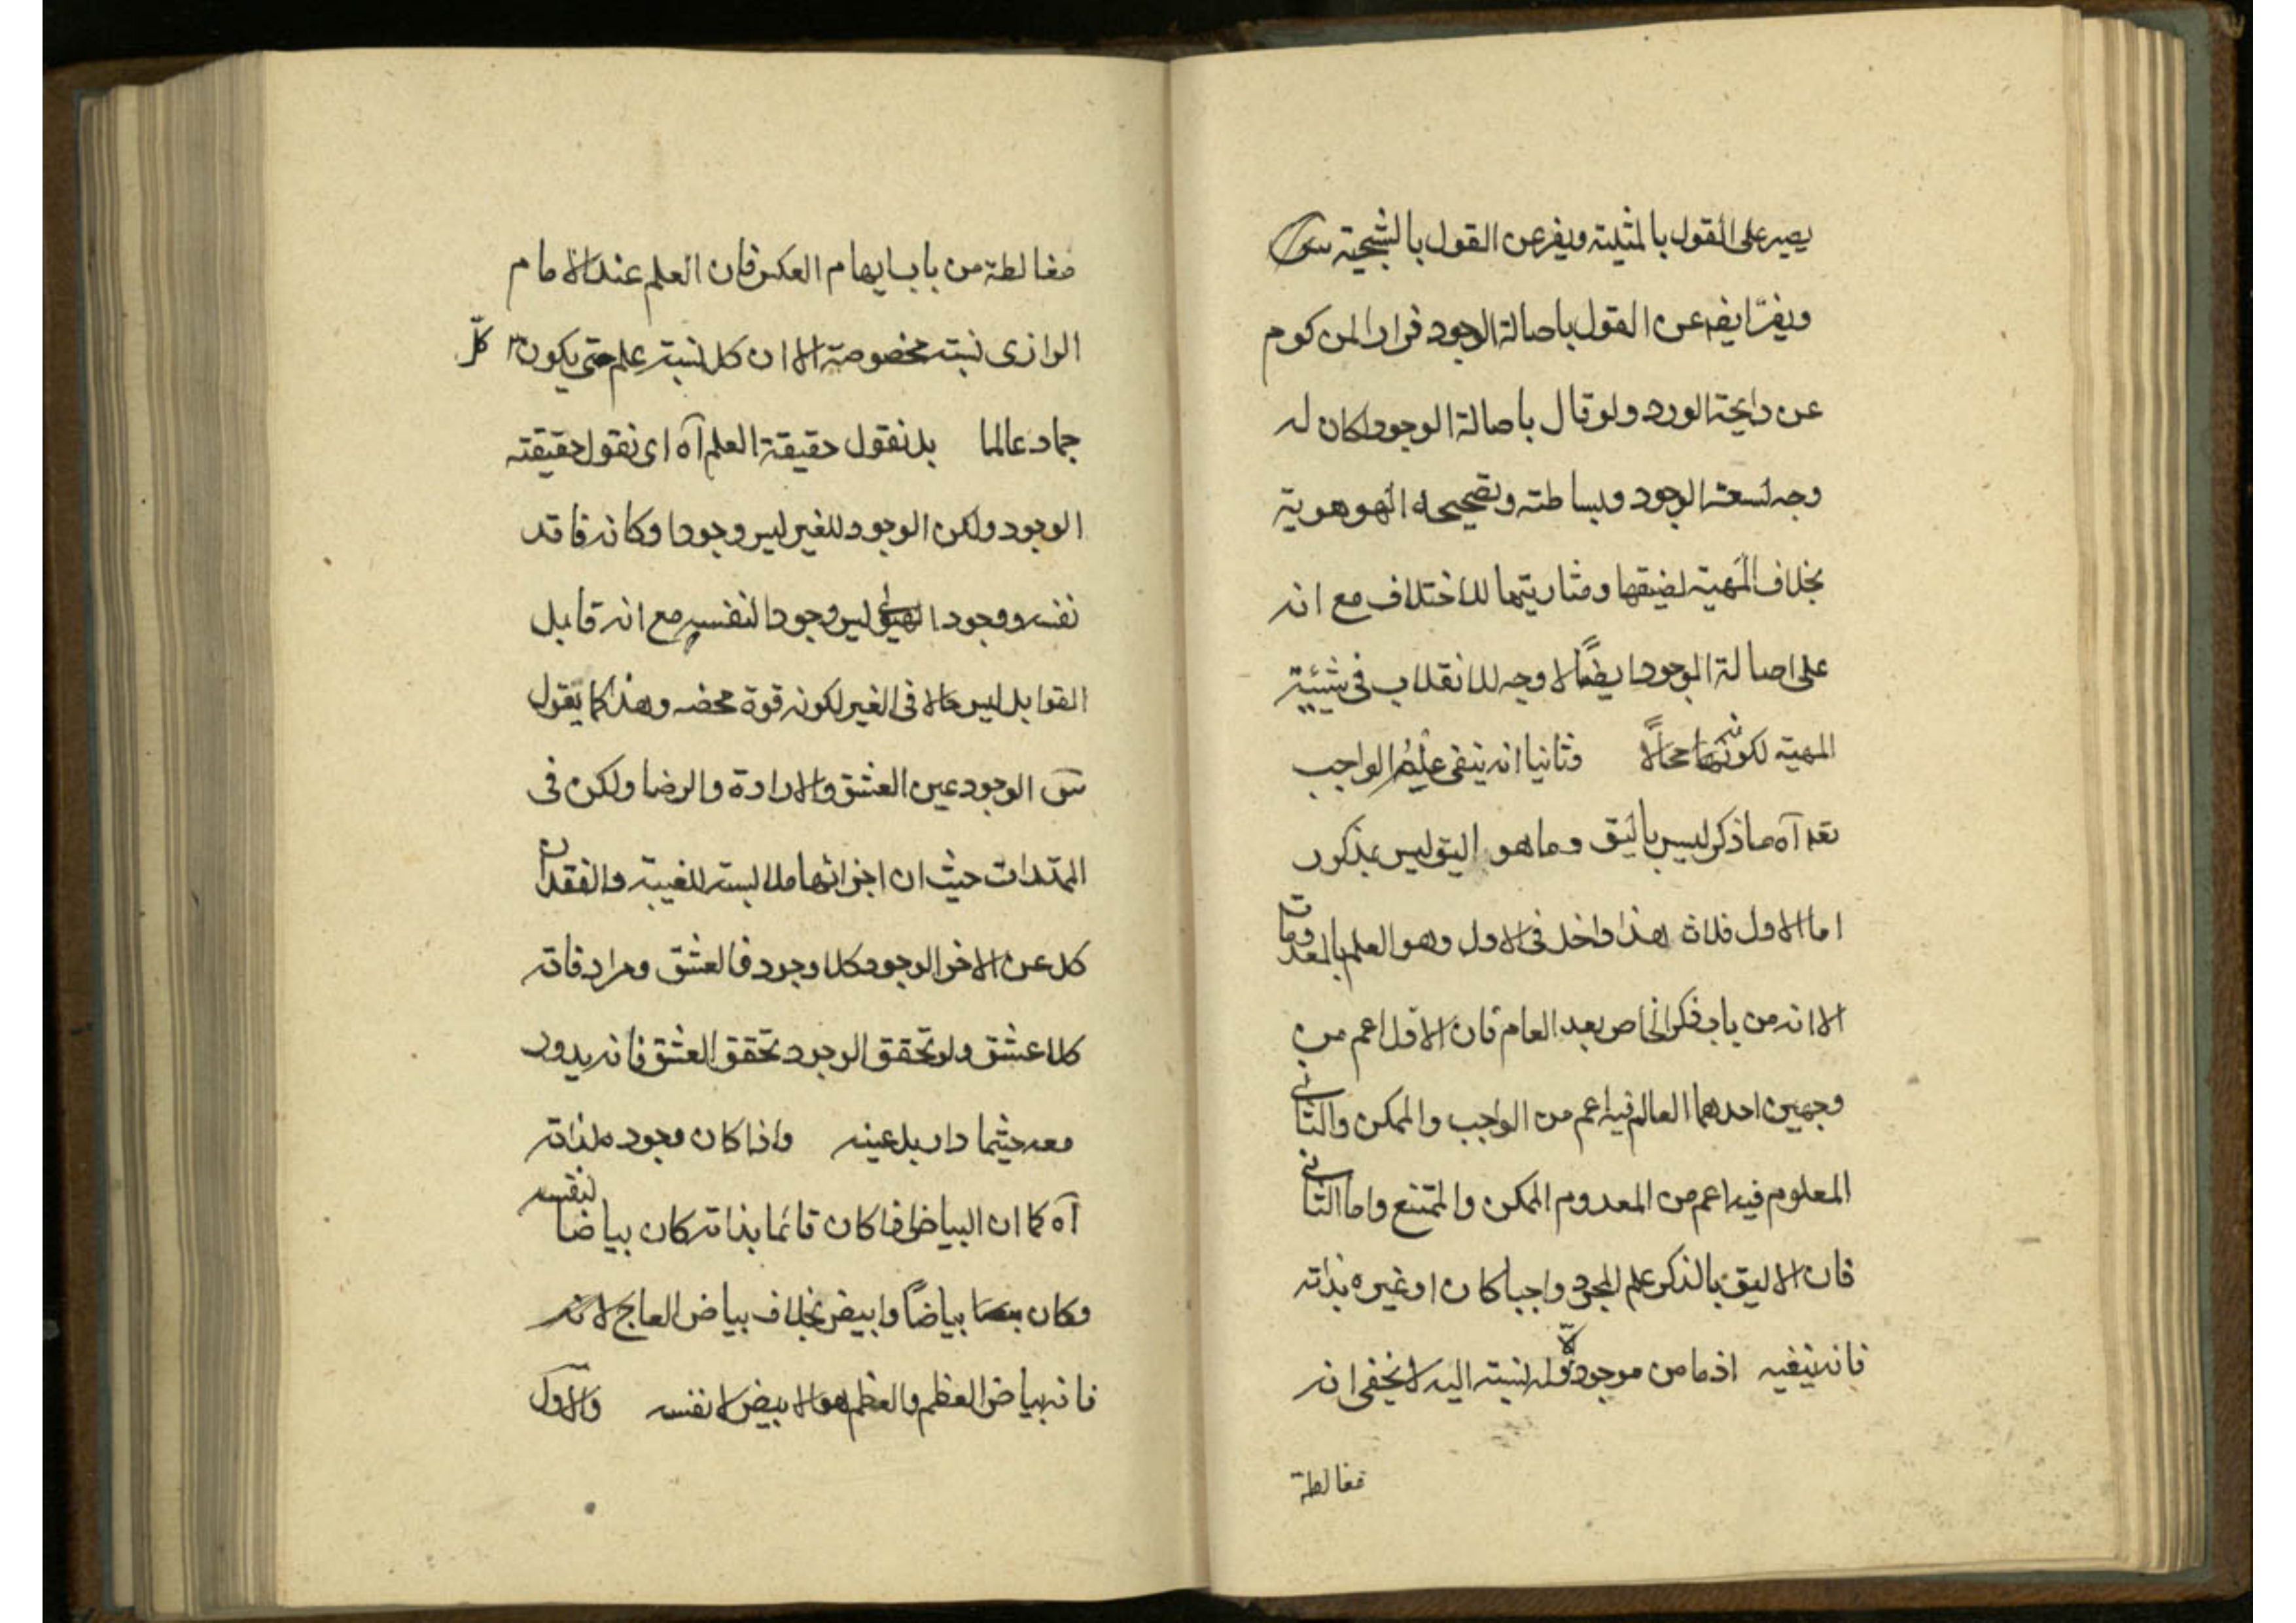 يصير على القول بالمثلية ويفر عن القول بالشبحية
ويفر ايضا عن القول باصالة الوجود فرارا لمزكوم
عن رايحة الورد ولو قال باصالة الوجود لكان له
وجه لسعة الوجود وبساطته وتصحيحه الهوهوية
بخلاف المهية لضيقها ومثاريتها للاختلاف مع انه
على اصالة الوجود ايضًا لا وجه للانقلاب فى شيئية
المهية لكونه محالًا وثانيا انه ينفى علم الواجب
تعه آه ما ذكر ليس باليق وما هو اليق ليس بمذكور
اما الاول فلان هذا داخل فى الاول وهو العلم بالمعدومات
الا انه من باب ذكر الخاص بعد العام فان الاول اعم من
وجهين احدهما العالم فيه اعم من الواجب والممكن والثانى
المعلوم فيه اعم من المعدوم الممكن والممتنع واما الثانى
فان الاليق بالذكر علم المجرد واجبا كان او غيره بذاته
فانه ينفيه اذ ما من موجود الّا وله نسبته اليه لا يخفى انه
مغالطة
مغالطة من باب ايهام العكس فان العلم عند الامام
الرازى نسبته مخصوصة لا ان كل نسبة علم حتى يكون كلّ
جماد عالما بل نقول حقيقة العلم آه اى نقول حقيقته
الوجود ولكن الوجود للغير ليس وجودا وكانه فاقد
نفسه ووجود الهيولى ليس وجودا لنفسه مع انه قابل
القوابل ليس حالا فى الغير لكونه قوة محضه وهذا كما يقول
الوجود عين العشق والارادة والرضا ولكن فى
الممتدات حيث ان اجزائها ملابسته للغيبة والفقدان
كل عن الاخر الوجود كلا وجود فالعشق ومرادفاته
كلا عشق ولو تحقق الوجود تحقق العشق فانه يدور
معه حيثما دار بل عينه واذا كان وجوده لذاته
آه كما ان البياض اذا كان قائما بذاته كان بياضا لنفسه
وكان بياضاً وابيض بخلاف بياض العاج لانه
فانه بياض العظم والعظم هو الابيض لا نفسه والاول